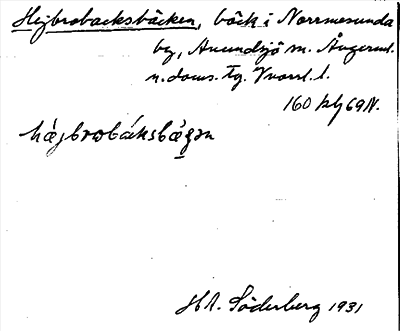 Hejbrobacksbäcken, bäck i Norrmesunda
by, Anundsjö sn. Ångerml.
n. doms. Tg. Vvarrl. l.
160 kbg 69N.
håjbrobáksbä̀gən
H A. Söderberg 1931